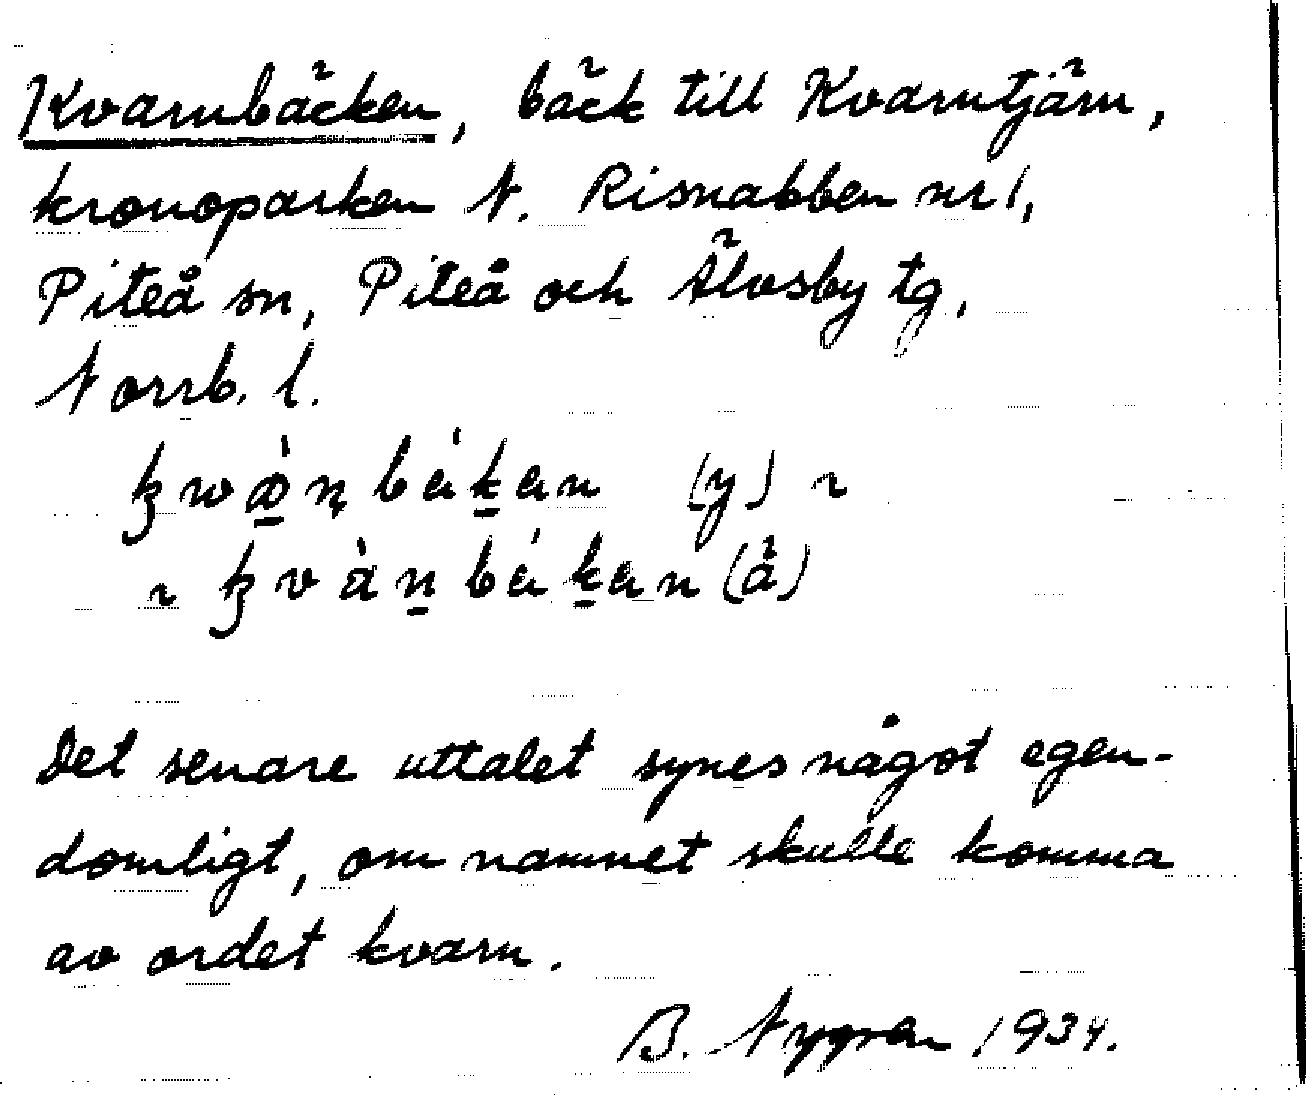 Kvarnbäcken, bäck till Kvarntjärn,
kronoparken N. Risnabben nr 1,
Piteå sn, Piteå och Älvsby tg,
Norrb. l.
(y) ~
~ (ä)
Det senare uttalet synes något egen-
domligt, om namnet skulle komma
av ordet kvarn.
B. Nygren 1934.